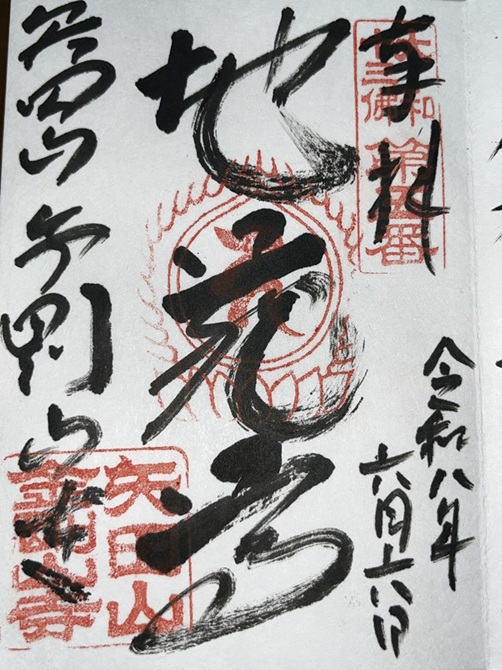 奉拝
大和十三佛
第五番
令和八年
六月六日
地蔵尊
矢田山金剛山寺
矢田山
金剛山寺